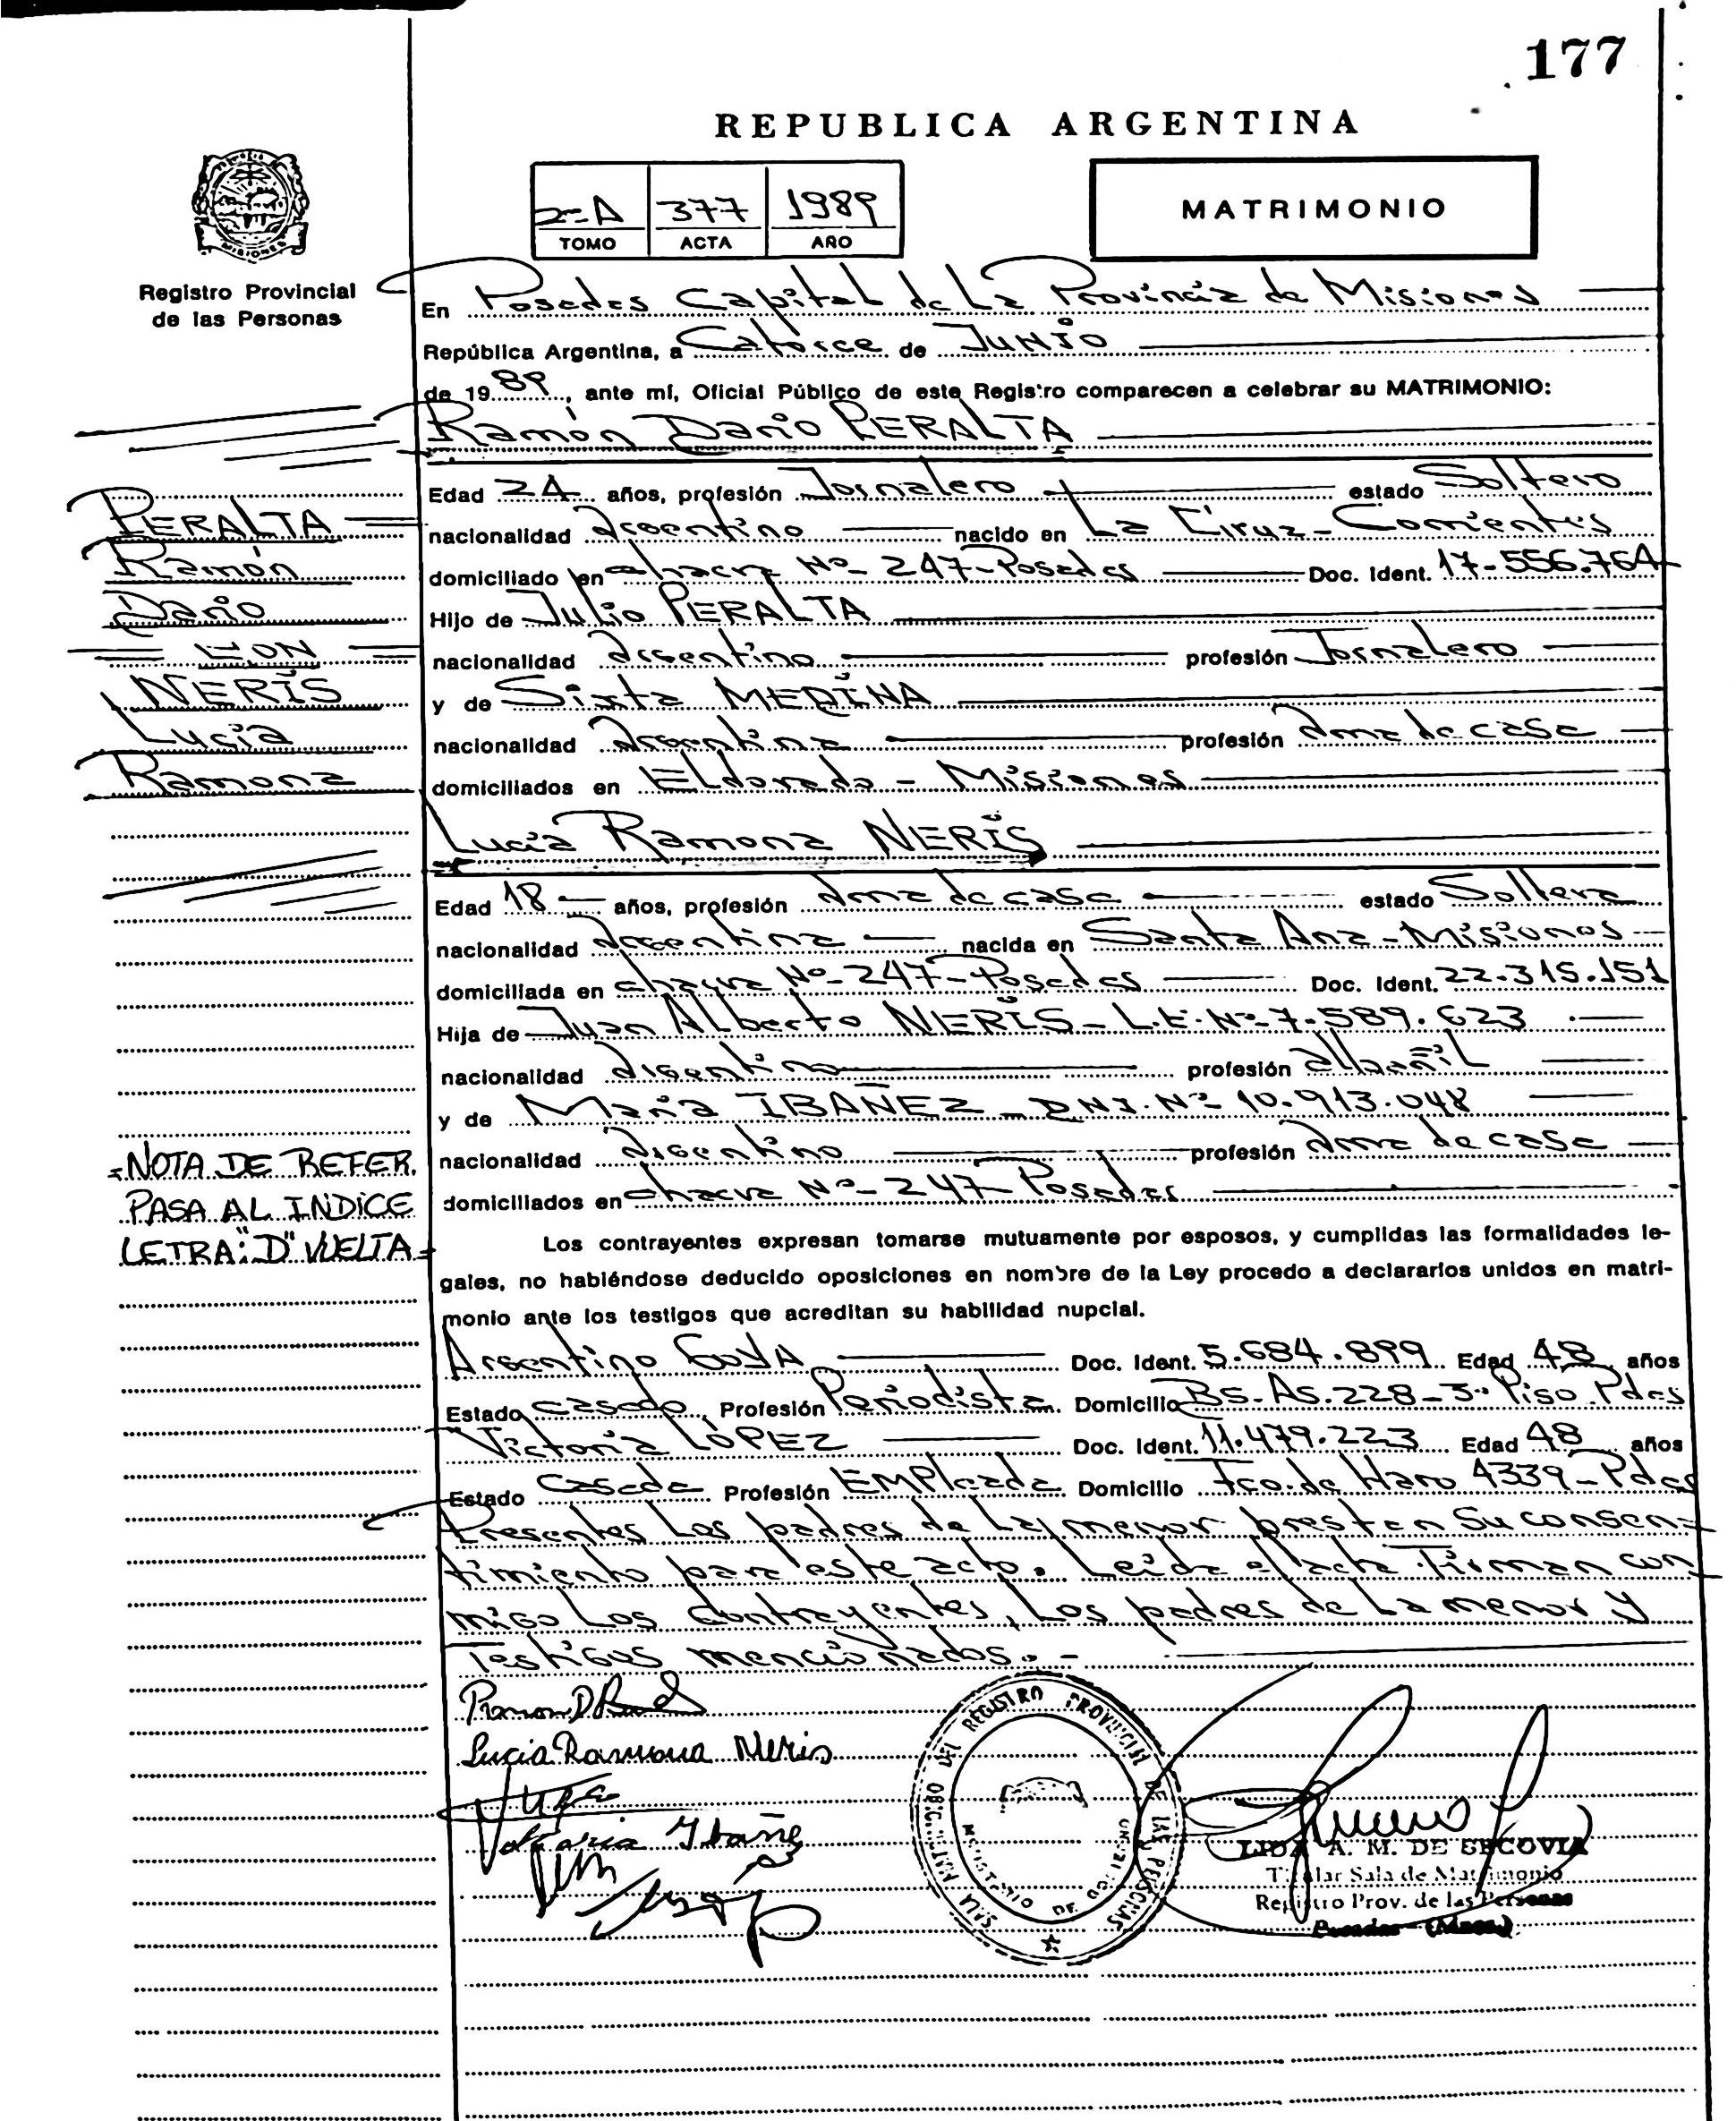 177
REPUBLICA ARGENTINA
2-A 377 1989
TOMO ACTA AÑO
MATRIMONIO
MISIONES
Registro Provincial
de las Personas
En Posadas Capital de La Provincia de Misiones
República Argentina, a Catorce de JUNIO
de 1989, ante mí, Oficial Público de este Registro comparecen a celebrar su MATRIMONIO:
Ramón Darío PERALTA
Edad 24 años, profesión Jornalero estado Soltero
nacionalidad argentino nacido en La Cruz-Corrientes
domiciliado en chacra Nº-247-Posadas Doc. Ident. 17-556.764
Hijo de Julio PERALTA
nacionalidad argentino profesión Jornalero
y de Sixta MEDINA
nacionalidad argentina profesión ama de casa
domiciliados en Eldorado - Misiones
Lucía Ramona NERIS
Edad 18 años, profesión ama de casa estado Soltera
nacionalidad argentina nacida en Santa Ana-Misiones
domiciliada en chacra Nº-247-Posadas Doc. Ident. 22.315.151
Hija de Juan Alberto NERIS-L.E.Nº-7.589.623
nacionalidad argentino profesión albañil
y de María IBAÑEZ-DNI.Nº-10.913.048
nacionalidad argentino profesión ama de casa
domiciliados en chacra Nº-247-Posadas
Los contrayentes expresan tomarse mutuamente por esposos, y cumplidas las formalidades le-
gales, no habiéndose deducido oposiciones en nombre de la Ley procedo a declararlos unidos en matri-
monio ante los testigos que acreditan su habilidad nupcial.
Argentino GOYA Doc. Ident. 5.684.899 Edad 48 años
Estado casado, Profesión Periodista Domicilio Bs-As.228-3º Piso Pdas
Victoria LÓPEZ Doc. Ident. 11.479.223 Edad 48 años
Estado Casada Profesión EMPleada Domicilio Fco.de Haro 4339-Pdas
Presentes Los padres de La menor prestan Su consen-
timiento para este acto. Leída el acta Firman con
migo Los contrayentes, Los padres de La menor y
Testigos mencionados.-
PERALTA
Ramón
Darío
CON
NERIS
Lucía
Ramona
=NOTA DE REFER.
PASA AL INDICE
LETRA:"D" VUELTA=
Lucia Ramona Neris
Maria Ibañez
SALA MATRIMONIO DEL REGISTRO PROVINCIAL DE LAS PERSONAS
LIDA A. M. DE SEGOVIA
Titular Sala de Matrimonio
Registro Prov. de las Personas
Posadas (Mnes.)